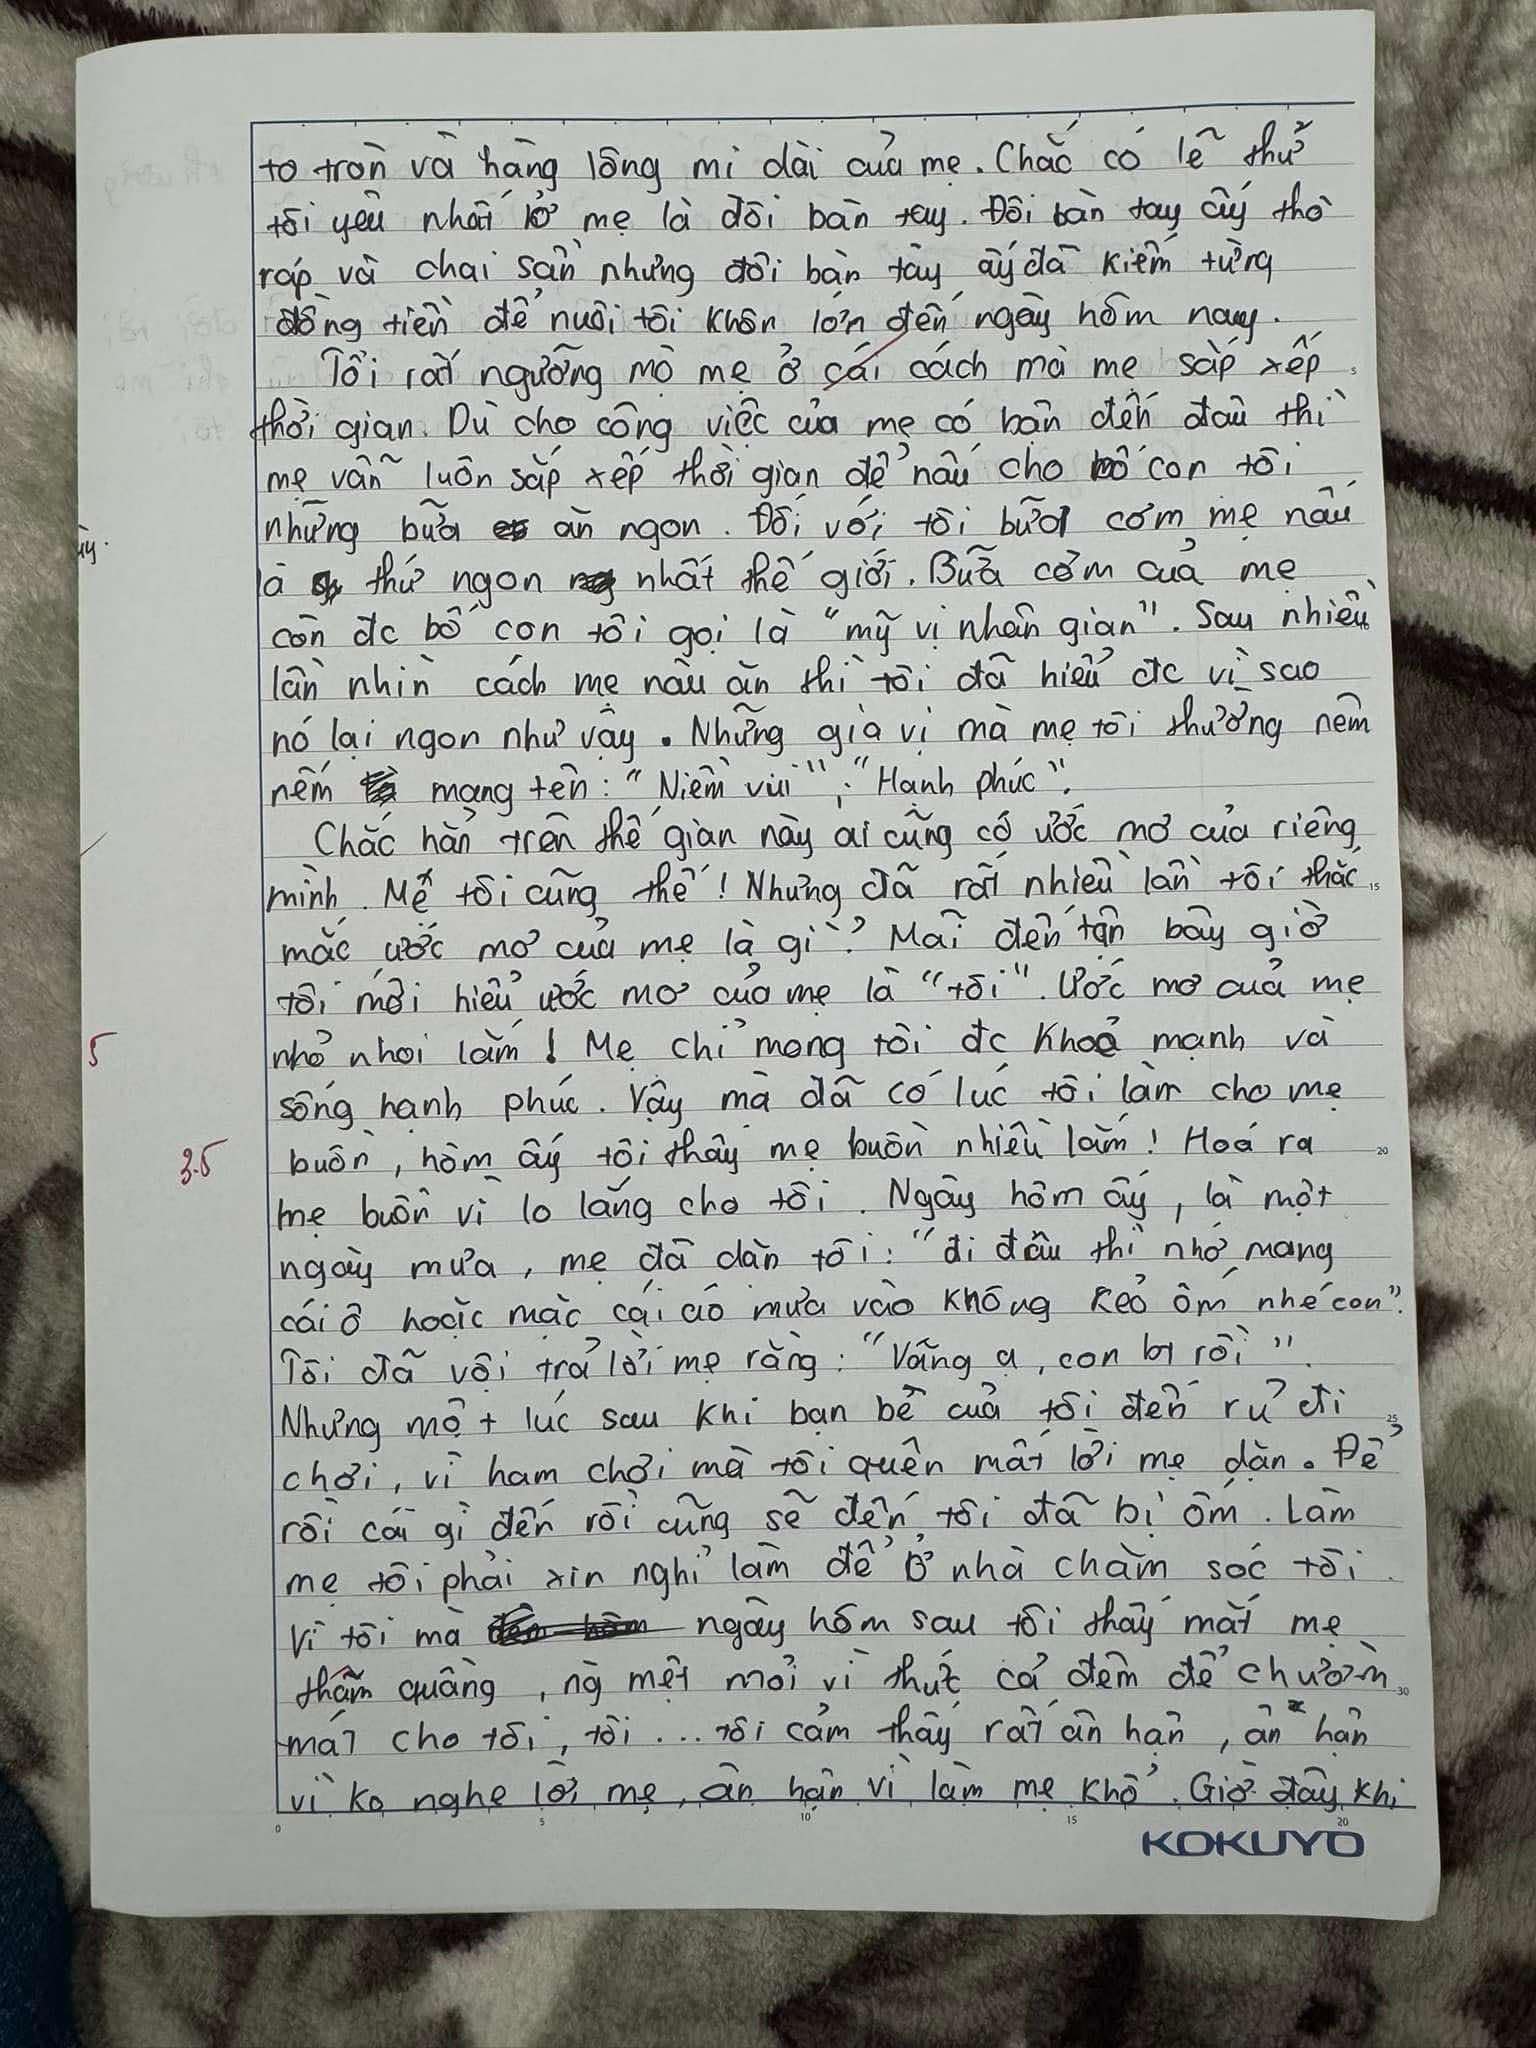 to tròn và hàng lông mi dài của mẹ. Chắc có lẽ thứ
tôi yêu nhất ở mẹ là đôi bàn tay. Đôi bàn tay ấy thô
ráp và chai sần nhưng đôi bàn tày ấy đã kiếm từng
đồng tiền để nuôi tôi khôn lớn đến ngày hôm nay.
Tôi rất ngưỡng mộ mẹ ở cái cách mà mẹ sắp xếp
thời gian. Dù cho công việc của mẹ có bận đến đâu thì
mẹ vẫn luôn sắp xếp thời gian để nấu cho bố con tôi
những bữa ăn ngon. Đối với tôi bữa cơm mẹ nấu
là thứ ngon nhất thế giới. Bữa cơm của mẹ
còn đc bố con tôi gọi là "mỹ vị nhân gian". Sau nhiều
lần nhìn cách mẹ nấu ăn thì tôi đã hiểu đc vì sao
nó lại ngon như vậy. Những gia vị mà mẹ tôi thường nêm
nếm mang tên: "Niềm vui"; "Hạnh phúc".
Chắc hẳn trên thế gian này ai cũng có ước mơ của riêng
mình. Mẹ tôi cũng thế! Nhưng đã rất nhiều lần tôi thắc
mắc ước mơ của mẹ là gì? Mãi đến tận bây giờ
tôi mới hiểu ước mơ của mẹ là "tôi". Ước mơ của mẹ
nhỏ nhoi lắm! Mẹ chỉ mong tôi đc khoẻ mạnh và
5
sống hạnh phúc. Vậy mà đã có lúc tôi làm cho mẹ
3.5
buồn, hôm ấy tôi thấy mẹ buồn nhiều lắm! Hoá ra
mẹ buồn vì lo lắng cho tôi. Ngày hôm ấy, là một
ngày mưa, mẹ đã dặn tôi: "đi đâu thì nhớ mang
cái ô hoặc mặc cái áo mưa vào không kẻo ốm nhé con".
Tôi đã vội trả lời mẹ rằng: "Vâng ạ, con bt rồi".
Nhưng một lúc sau khi bạn bè của tôi đến rủ đi
chơi, vì ham chơi mà tôi quên mất lời mẹ dặn. Để
rồi cái gì đến rồi cũng sẽ đến tôi đã bị ốm. Làm
mẹ tôi phải xin nghỉ làm để ở nhà chăm sóc tôi.
Vì tôi mà ngày hôm sau tôi thấy mắt mẹ
thâm quầng, ng mệt mỏi vì thức cả đêm để chườm
mát cho tôi, tôi ... tôi cảm thấy rất ân hận, ân hận
vì ko nghe lời mẹ, ân hận vì làm mẹ khổ. Giờ đây khi
0 5 10 15 20
KOKUYO